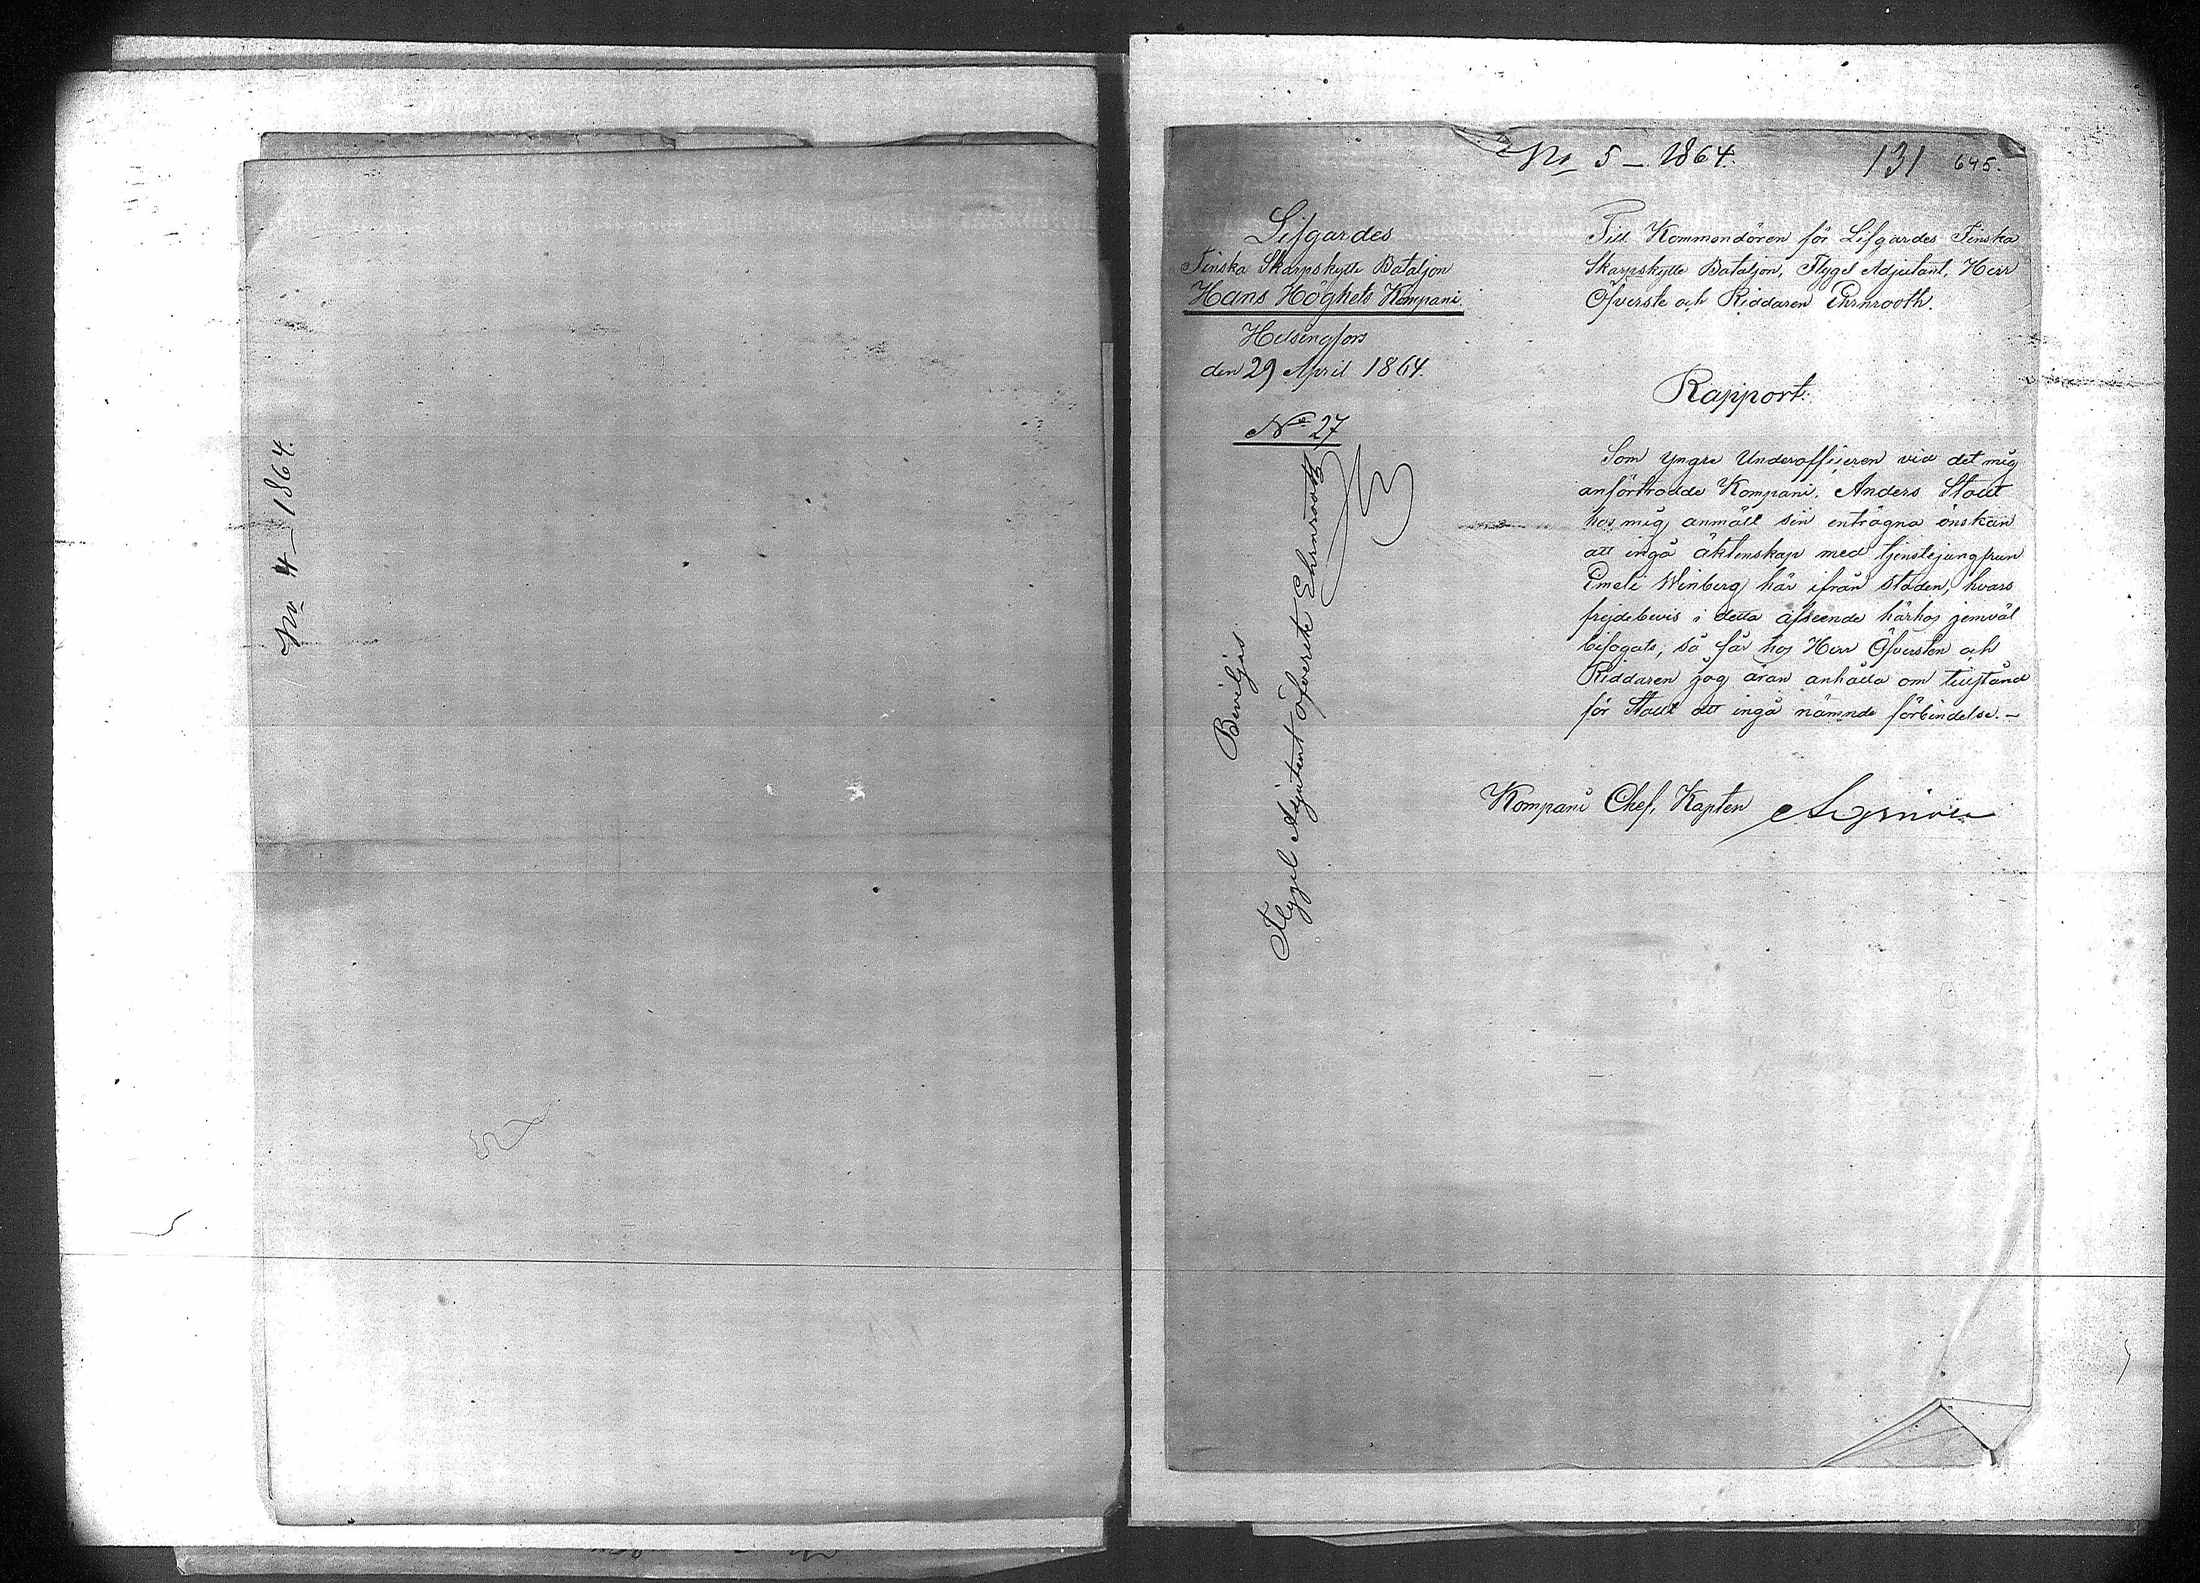 No 4 - 1864.
No 5 - 1864.
131 645.
Lifgardes
Finska Skarpskytte Bataljon
Hans Höghets Kompani.
Helsingfors
den 29 April 1864.
No 27
Till Kommendören för Lifgardes Finska
Skarpskytte Bataljon, Flygel Adjutant, Herr
Öfverste och Riddaren Ehrnrooth.
Rapport.
Som yngre Underofficeren vid det mig
anförtrodde Kompani, Anders Stolt
hos mig anmält sin enträgna önskan
att ingå äktenskap med tjenstejungfrun
Emeli Winberg här ifrån staden, hvars
frejdebevis i detta afseende härhos jemväl
bifogats, så får hos Herr Öfversten och
Riddaren jag äran anhålla om tillstånd
för Stolt att ingå nämnde förbindelse. -
Kompani Chef, Kapten
Beviljas.
Flygel Adjutant Öfverste Ehrnrooth